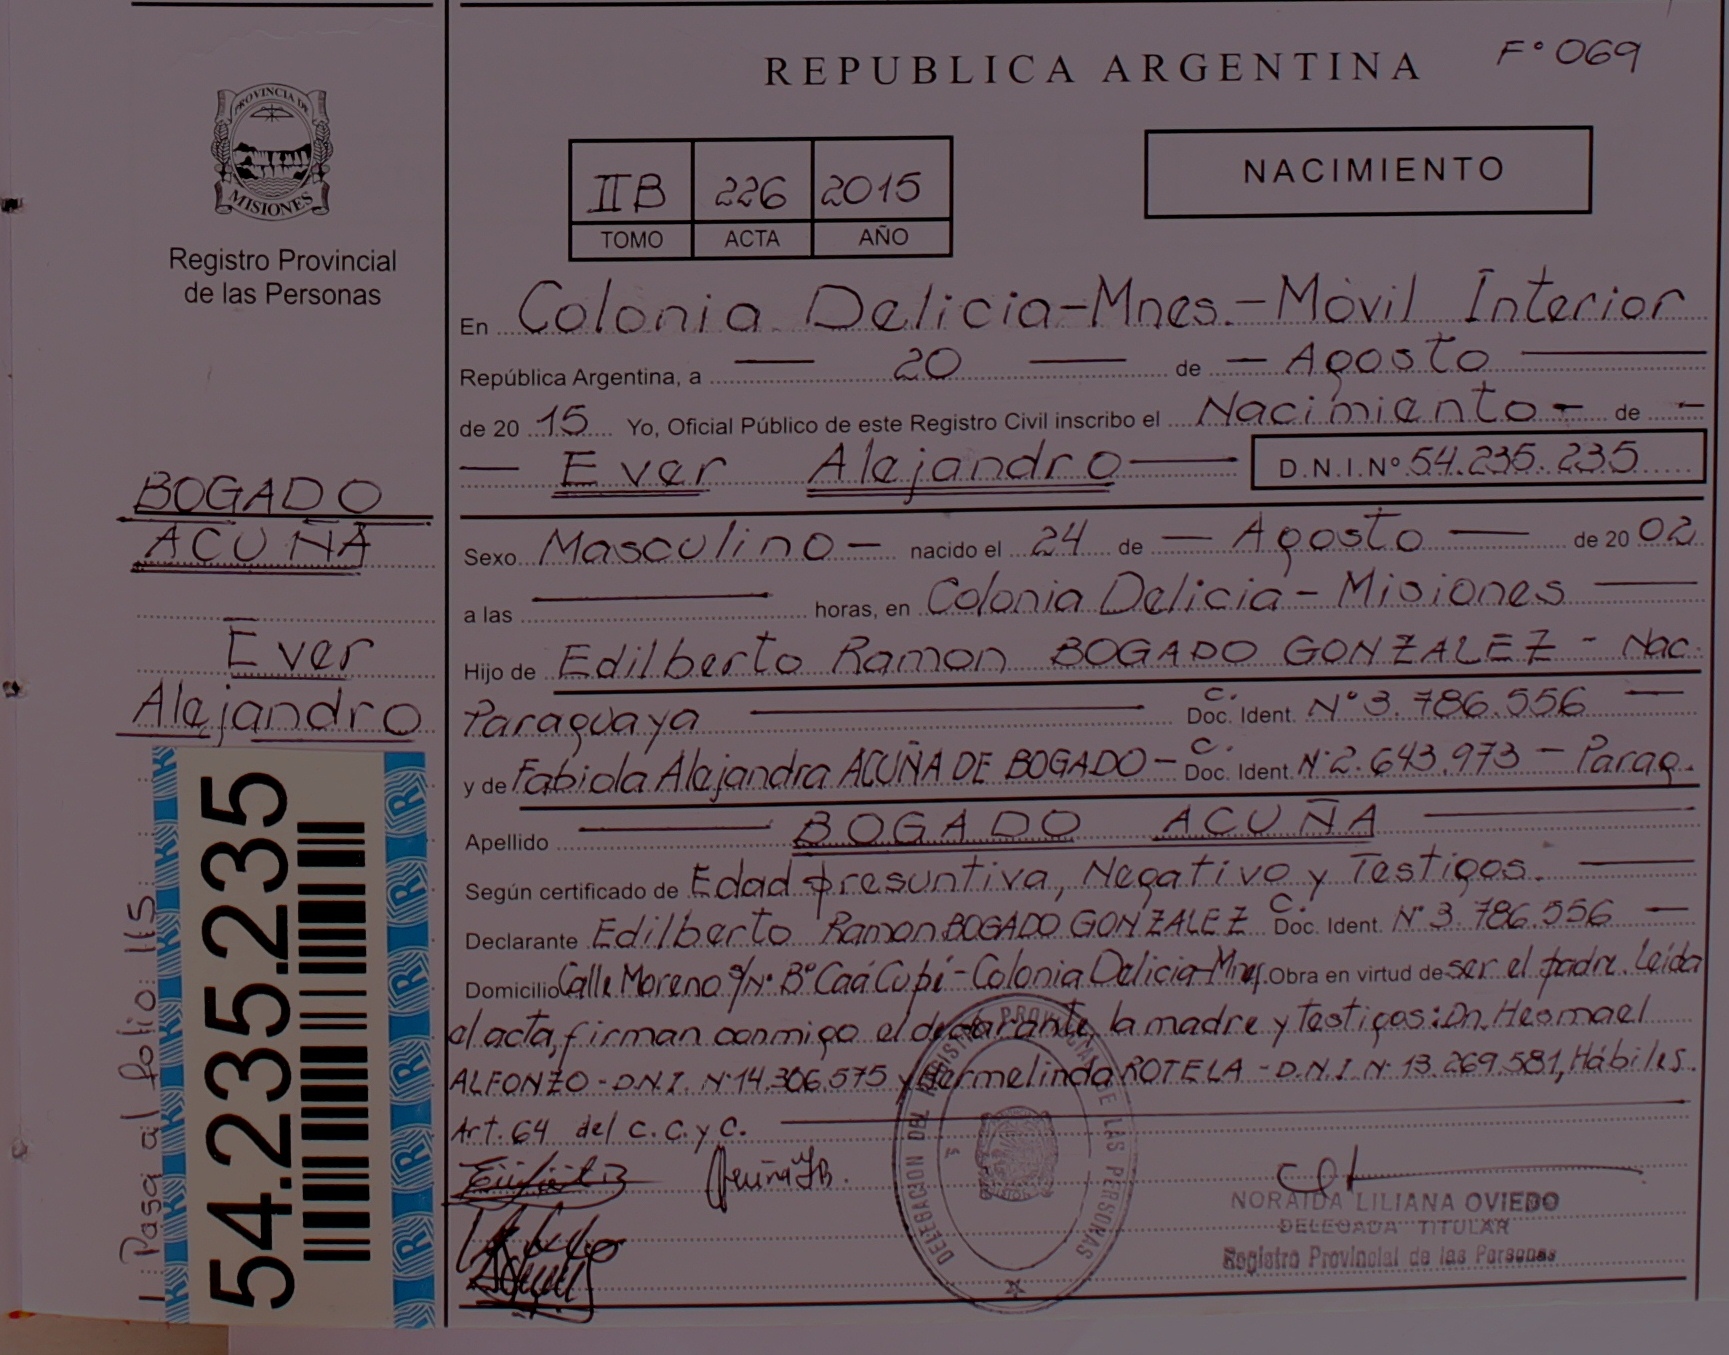 REPUBLICA ARGENTINA
Fº 069
PROVINCIA DE
MISIONES
Registro Provincial
de las Personas
IIB 226 2015
TOMO ACTA AÑO
NACIMIENTO
En Colonia Delicia-Mnes.-Móvil Interior
República Argentina, a — 20 — de — Agosto —
de 20 15 Yo, Oficial Público de este Registro Civil inscribo el Nacimiento - de -
— Ever Alejandro — D.N.I.Nº 54.235.235
BOGADO
ACUÑA
Ever
Alejandro
Sexo Masculino — nacido el 24 de — Agosto — de 20 02
a las — horas, en Colonia Delicia - Misiones —
Hijo de Edilberto Ramon BOGADO GONZALEZ - Nac.
Paraguaya — C. Doc. Ident. Nº 3.786.556 —
y de Fabiola Alejandra ACUÑA DE BOGADO - C. Doc. Ident. Nº 2.643.973 - Parag.
Apellido — BOGADO ACUÑA —
Según certificado de Edad presuntiva, Negativo y Testigos. —
Declarante Edilberto Ramon BOGADO GONZALEZ C. Doc. Ident. Nº 3.786.556 —
Domicilio Calle Moreno s/Nº Bº Caá Cupí - Colonia Delicia-Mnes. Obra en virtud de ser el padre. Leída
el acta, firman conmigo el declarante, la madre y testigos: Dn. Hesmael
ALFONZO - D.N.I. Nº 14.306.575 y Hermelinda ROTELA - D.N.I. Nº 13.269.581, Hábiles.
Art. 64 del C.C. y C. —
DELEGACION DEL REGISTRO PROVINCIAL DE LAS PERSONAS
NORAIDA LILIANA OVIEDO
DELEGADA TITULAR
Registro Provincial de las Personas
54.235.235
Pasa al folio: 115